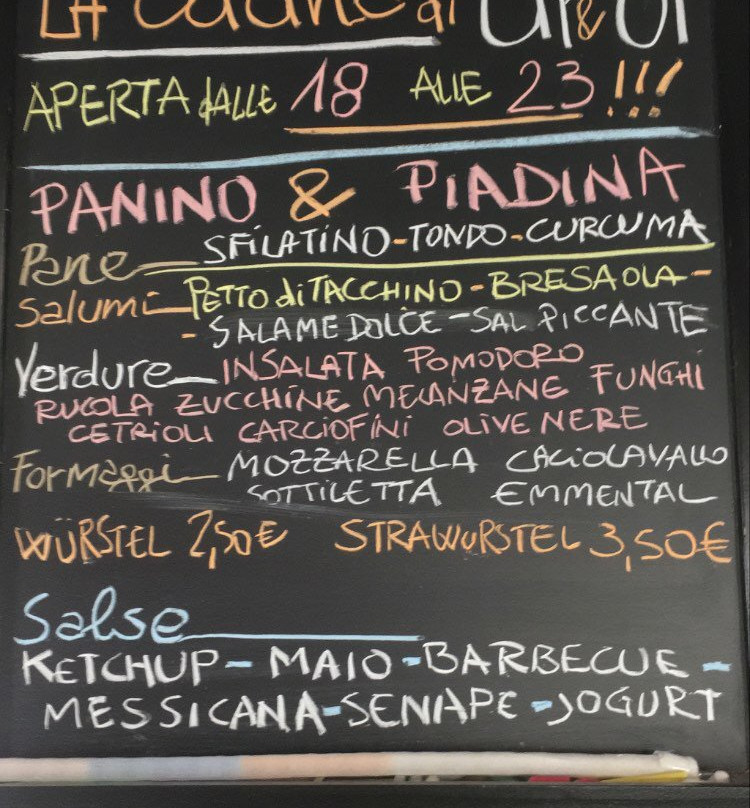 LA di & Ui
APERTA dALLE 18 ALLE 23 !!!
PANINO & PIADINA
Pane SFILATINO-TONDO-CURCUMA
Salumi PETTO di TACCHINO-BRESAOLA-
- SALAME DOLCE - SAL PICCANTE
Verdure INSALATA POMODORO FUNGHI
RUCOLA ZUCCHINE MELANZANE
CETRIOLI CARCIOFINI OLIVE NERE
Formaggi MOZZARELLA CACIOCAVALLO
SOTTILETTA EMMENTAL
WÜRSTEL 2,50€ STRAWURSTEL 3,50€
Salse
KETCHUP- MAIO -BARBECUE -
MESSICANA-SENAPE -JOGURT